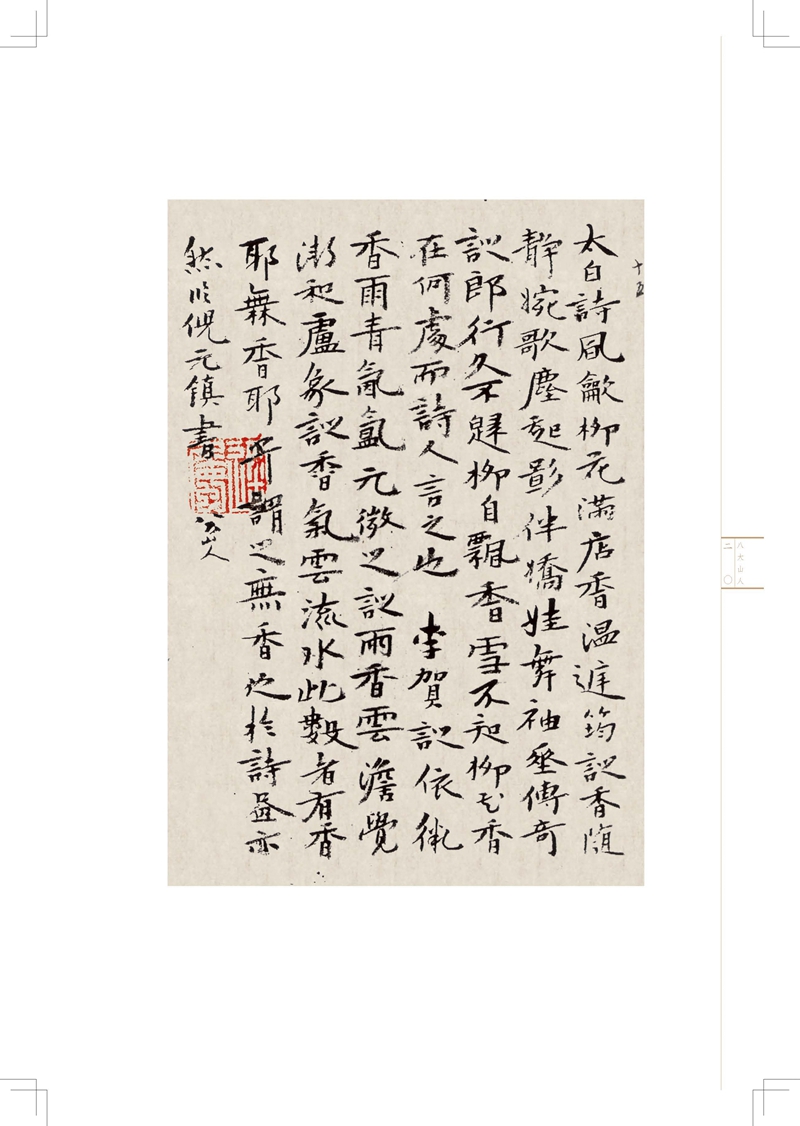 十五
太白詩風龡柳花滿店香温庭筠詠香隨
靜婉歌塵起影伴嬌娃舞袖垂傳奇
詠郎行久不歸柳自飄香雪不知柳花香
在何處而詩人言之也 李賀詠依微
香雨青氤氳元微之詠雨香雲澹覺
微和盧象詠香氣雲流水此數者有香
耶無香耶 謂之無香 於詩益亦
然 倪元鎮書
八大山人
八大山人
二〇